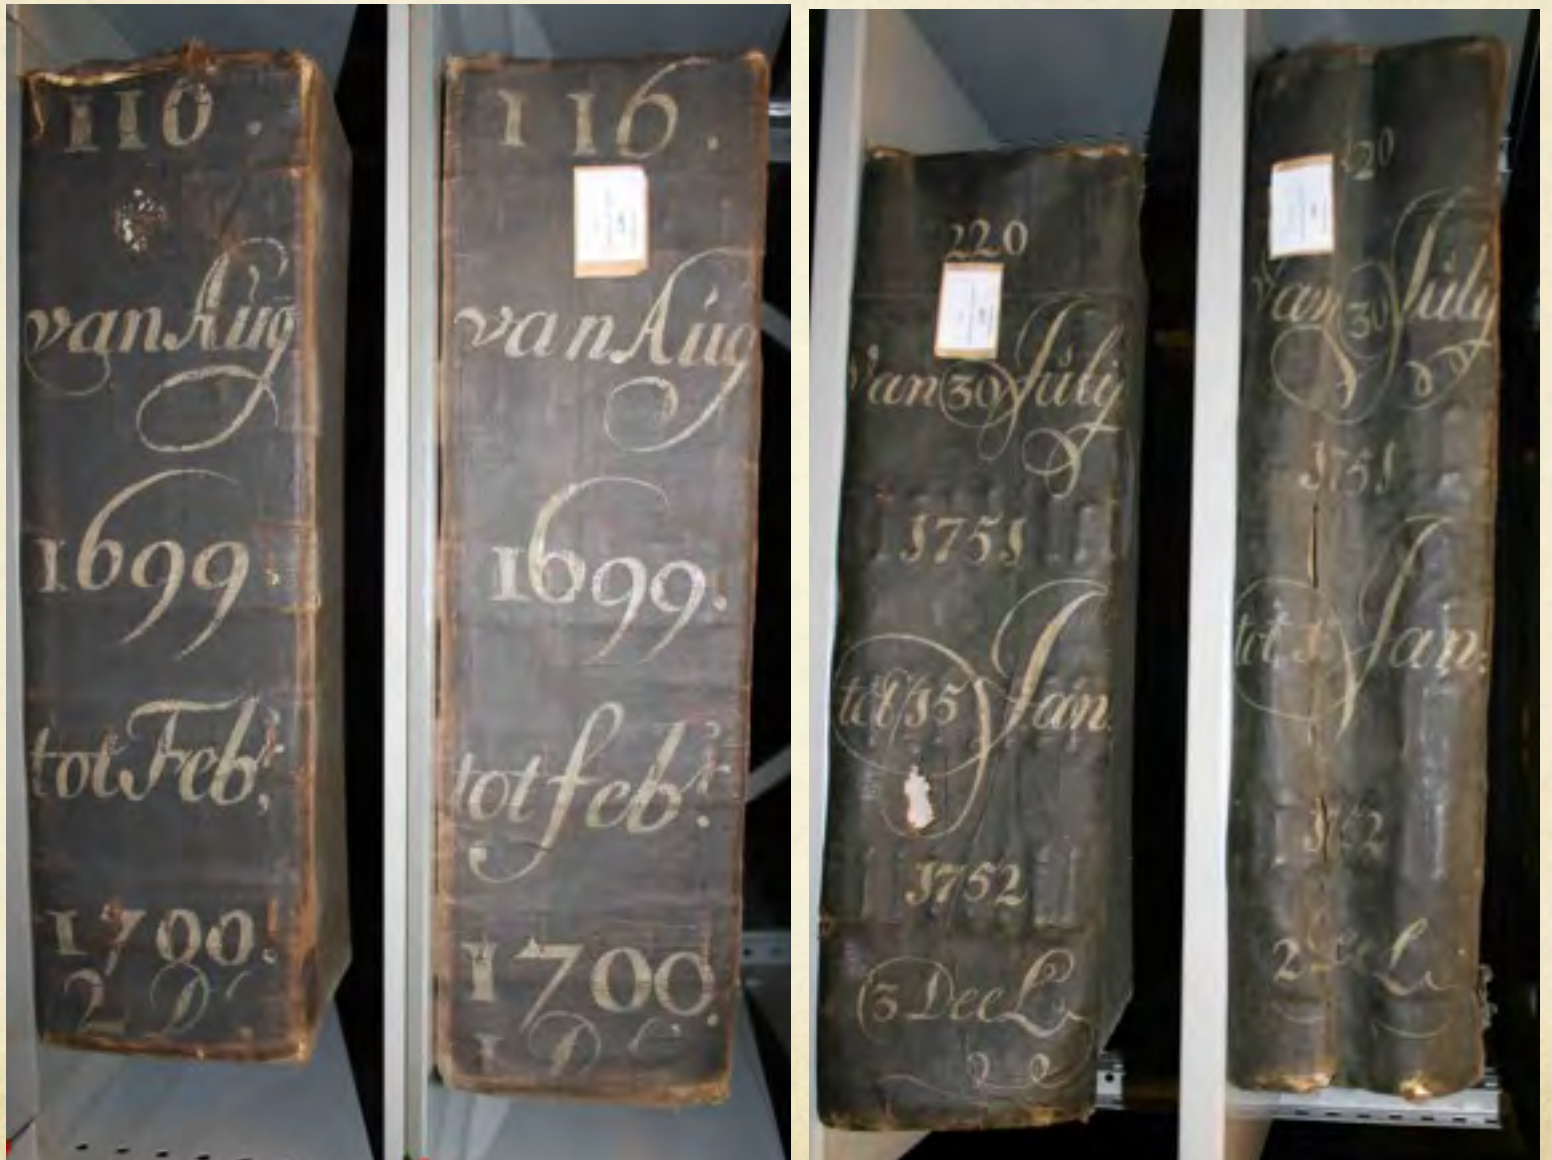 110.
van Aug
1699.
tot Feb:
1700.
2 D
116.
van Aug
1699.
tot feb:
1700.
1 D
220
van 30 July
1751
tot 15 Jan.
1752
(3 DeeL
220
van 30 July
1751
tot Jan.
1752
2 DeeL